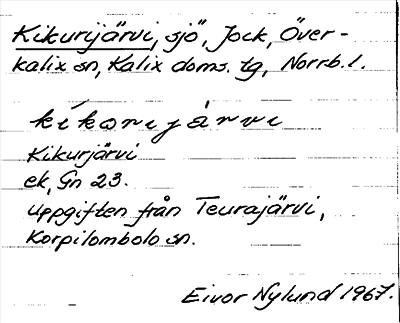 Kikurijärvi, sjö, Jock, Över-
kalix sn, Kalix doms. tg, Norrb. l.
kikorijärvi
Kikurjärvi
ek, Gn 23.
Uppgiften från Teurajärvi,
Korpilombolo sn.
Eivor Nylund 1967.